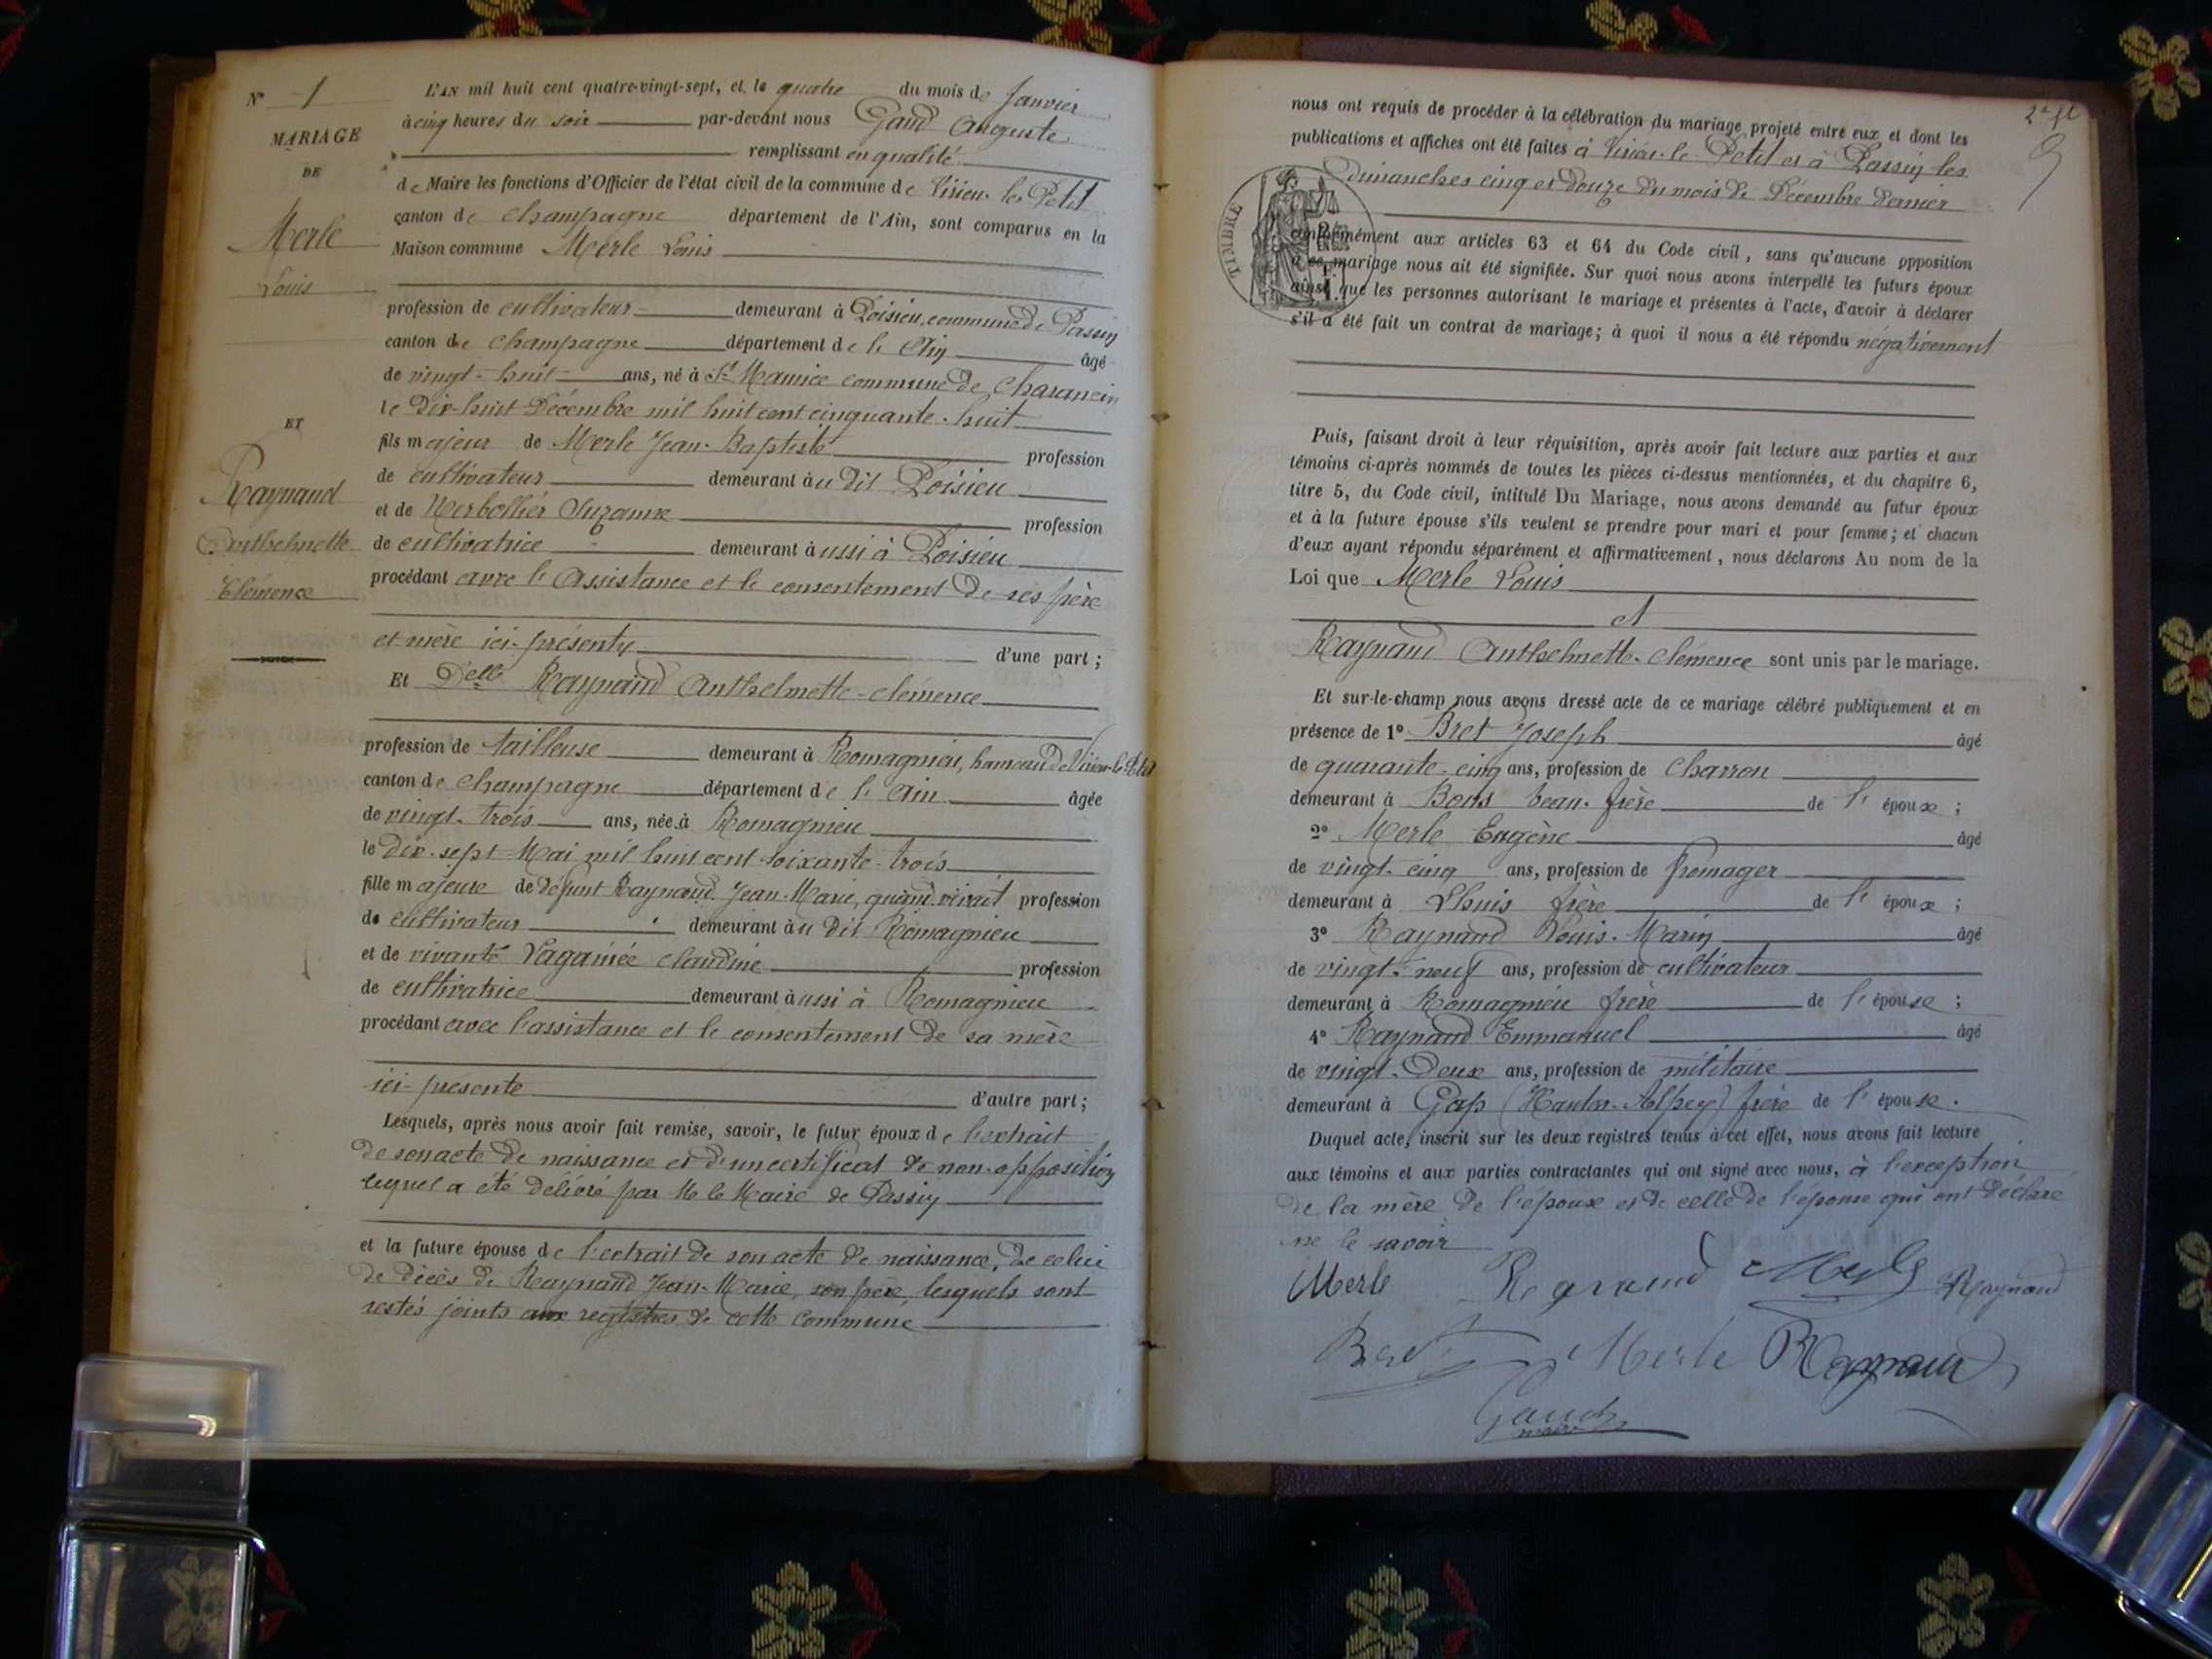 N° 1
MARIAGE
DE
Merle
Louis
ET
Raynaud
Anthelmette
Clémence
L'AN mil huit cent quatre-vingt-sept, et le quatre du mois de Janvier
à cinq heures du soir par-devant nous Gand Auguste
remplissant en qualité
de Maire les fonctions d'Officier de l'état civil de la commune de Virieu-le-Petit
canton de Champagne département de l'Ain, sont comparus en la
Maison commune Merle Louis
profession de cultivateur demeurant à Poisieu, commune de Passin
canton de Champagne département de l'Ain âgé
de vingt-huit ans, né à St Maurice commune de Charancin
le dix-huit Décembre mil huit cent cinquante-huit
fils majeur de Merle Jean-Baptiste profession
de cultivateur demeurant au dit Poisieu
et de Suzanne profession
de cultivatrice demeurant aussi à Poisieu
procédant avec l'assistance et le consentement de ses père
et mère ici-présents d'une part ;
Et Delle Raynaud Anthelmette-Clémence
profession de tailleuse demeurant à Romagnieu, hameau de Virieu-le-Petit
canton de Champagne département de l'Ain âgée
de vingt-trois ans, née à Romagnieu
le dix-sept Mai mil huit cent soixante-trois
fille majeure de défunt Raynaud Jean-Marie, quand vivait profession
de cultivateur demeurant au dit Romagnieu
et de vivante Claudine profession
de cultivatrice demeurant aussi à Romagnieu
procédant avec l'assistance et le consentement de sa mère
ici-présente d'autre part ;
Lesquels, après nous avoir fait remise, savoir, le futur époux de l'extrait
de son acte de naissance et d'un certificat de non-opposition
lequel a été délivré par M le Maire de Passin
et la future épouse de l'extrait de son acte de naissance, de celui
de décès de Raynaud Jean-Marie, son père, lesquels sont
restés joints aux registres de cette commune
2e ft
nous ont requis de procéder à la célébration du mariage projeté entre eux et dont les
publications et affiches ont été faites à Virieu-le-Petit et à Passin les
dimanches cinq et douze du mois de Décembre dernier
TIMBRE
conformément aux articles 63 et 64 du Code civil, sans qu'aucune opposition
à ce mariage nous ait été signifiée. Sur quoi nous avons interpellé les futurs époux
ainsi que les personnes autorisant le mariage et présentes à l'acte, d'avoir à déclarer
s'il a été fait un contrat de mariage ; à quoi il nous a été répondu négativement
Puis, faisant droit à leur réquisition, après avoir fait lecture aux parties et aux
témoins ci-après nommés de toutes les pièces ci-dessus mentionnées, et du chapitre 6,
titre 5, du Code civil, intitulé Du Mariage, nous avons demandé au futur époux
et à la future épouse s'ils veulent se prendre pour mari et pour femme ; et chacun
d'eux ayant répondu séparément et affirmativement, nous déclarons Au nom de la
Loi que Merle Louis
et
Raynaud Anthelmette-Clémence sont unis par le mariage.
Et sur-le-champ nous avons dressé acte de ce mariage célébré publiquement et en
présence de 1° Bret Joseph âgé
de quarante-cinq ans, profession de charron
demeurant à Bons beau-frère de l'époux ;
2° Merle Eugène âgé
de vingt-cinq ans, profession de fromager
demeurant à Lhuis frère de l'époux ;
3° Raynaud Louis-Marin âgé
de vingt-neuf ans, profession de cultivateur
demeurant à Romagnieu frère de l'épouse ;
4° Raynaud Emmanuel âgé
de vingt-deux ans, profession de militaire
demeurant à Gap (Hautes-Alpes) frère de l'épouse.
Duquel acte, inscrit sur les deux registres tenus à cet effet, nous avons fait lecture
aux témoins et aux parties contractantes qui ont signé avec nous, à l'exception
de la mère de l'époux et de celle de l'épouse qui ont déclaré
ne le savoir
Merle Regnaud Merle Raynaud
Bret Merle Raynaud
Gand
maire